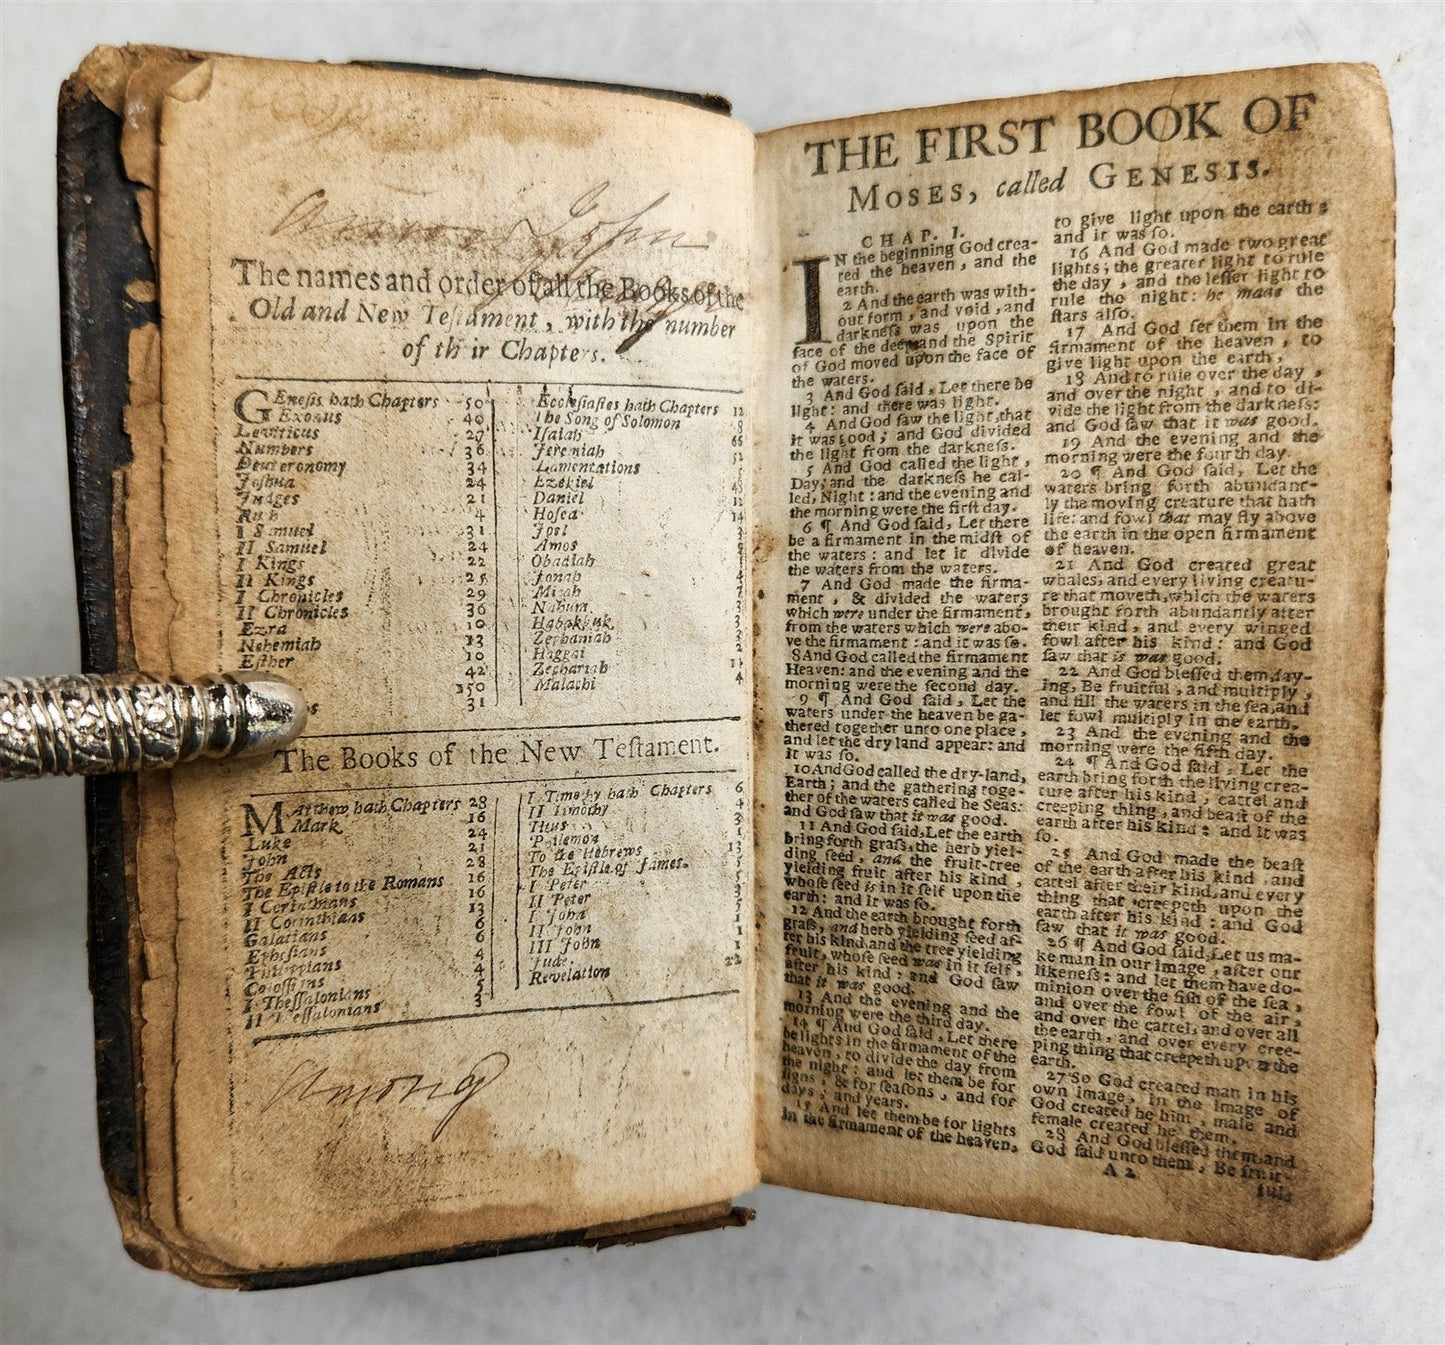 John
The names and order of all the Books of the
Old and New Teſtament, with the number
of th ir Chapters.
GEneſis hath Chapters 50
Exodus 40
Leviticus 27
Numbers 36
Deuteronomy 34
Joſhua 24
Judges 21
Ruth 4
I Samuel 31
II Samuel 24
I Kings 22
II Kings 25
I Chronicles 29
II Chronicles 36
Ezra 10
Nehemiah 13
Eſther 10
42
150
31
Eccleſiaſtes hath Chapters 12
The Song of Solomon 8
Iſaiah 66
Jeremiah 52
Lamentations 5
Ezekiel 48
Daniel 12
Hoſea 14
Joel 3
Amos 9
Obadiah 1
Jonah 4
Micah 7
Nahum 3
Habakkuk 3
Zephaniah 3
Haggai 2
Zechariah 14
Malachi 4
The Books of the New Teſtament.
MAtthew hath Chapters 28
Mark 16
Luke 24
John 21
The Acts 28
The Epiſtle to the Romans 16
I Corinthians 16
II Corinthians 13
Galatians 6
Epheſians 6
Philippians 4
Coloſſians 4
I Theſſalonians 5
II Theſſalonians 3
I Timothy hath Chapters 6
II Timothy 4
Titus 3
Philemon 1
To the Hebrews 13
The Epiſtle of James. 5
I Peter 5
II Peter 3
I John 5
II John 1
III John 1
Jude 1
Revelation 22
Among
THE FIRST BOOK OF
MOSES, called GENESIS.
CHAP. I.
IN the beginning God crea-
ted the heaven, and the
earth.
2 And the earth was with-
out form, and void, and
darkneſs was upon the
face of the deep: and the Spirit
of God moved upon the face of
the waters.
3 And God ſaid, Let there be
light: and there was light.
4 And God ſaw the light, that
it was good; and God divided
the light from the darkneſs.
5 And God called the light,
Day; and the darkneſs he cal-
led, Night: and the evening and
the morning were the firſt day.
6 ¶ And God ſaid, Let there
be a firmament in the midſt of
the waters: and let it divide
the waters from the waters.
7 And God made the firma-
ment, & divided the waters
which were under the firmament,
from the waters which were abo-
ve the firmament: and it was ſo.
8 And God called the firmament
Heaven: and the evening and the
morning were the ſecond day.
9 ¶ And God ſaid, Let the
waters under the heaven be ga-
thered together unto one place,
and let the dry land appear: and
it was ſo.
10 And God called the dry-land,
Earth; and the gathering toge-
ther of the waters called he Seas:
and God ſaw that it was good.
11 And God ſaid, Let the earth
bring forth graſs, the herb yiel-
ding ſeed, and the fruit-tree
yielding fruit after his kind,
whoſe ſeed is in it ſelf upon the
earth: and it was ſo.
12 And the earth brought forth
graſs, and herb yielding ſeed af-
ter his kind, and the tree yielding
fruit, whoſe ſeed was in it ſelf,
after his kind: and God ſaw
that it was good.
13 And the evening and the
morning were the third day.
14 ¶ And God ſaid, Let there
be lights in the firmament of the
heaven, to divide the day from
the night: and let them be for
ſigns, & for ſeaſons, and for
days, and years.
15 And let them be for lights
in the firmament of the heaven,
to give light upon the earth:
and it was ſo.
16 And God made two great
lights; the greater light to rule
the day, and the leſſer light to
rule the night: he made the
ſtars alſo.
17 And God ſet them in the
firmament of the heaven, to
give light upon the earth,
18 And to rule over the day,
and over the night, and to di-
vide the light from the darkneſs:
and God ſaw that it was good.
19 And the evening and the
morning were the fourth day.
20 ¶ And God ſaid, Let the
waters bring forth abundant-
ly the moving creature that hath
life: and fowl that may fly above
the earth in the open firmament
of heaven.
21 And God created great
whales, and every living creatu-
re that moveth, which the waters
brought forth abundantly after
their kind, and every winged
fowl after his kind: and God
ſaw that it was good.
22 And God bleſſed them, ſay-
ing, Be fruitful, and multiply,
and fill the waters in the ſea, and
let fowl multiply in the earth.
23 And the evening and the
morning were the fifth day.
24 ¶ And God ſaid, Let the
earth bring forth the living crea-
ture after his kind, cattel and
creeping thing, and beaſt of the
earth after his kind: and it was
ſo.
25 And God made the beaſt
of the earth after his kind, and
cattel after their kind, and every
thing that creepeth upon the
earth after his kind: and God
ſaw that it was good.
26 ¶ And God ſaid, Let us ma-
ke man in our image, after our
likeneſs: and let them have do-
minion over the fiſh of the ſea,
and over the fowl of the air,
and over the cattel, and over all
the earth, and over every cree-
ping thing that creepeth upon the
earth.
27 So God created man in his
own image, in the image of
God created he him, male and
female created he them.
28 And God bleſſed them, and
God ſaid unto them, Be fruit-
A 2
ful,